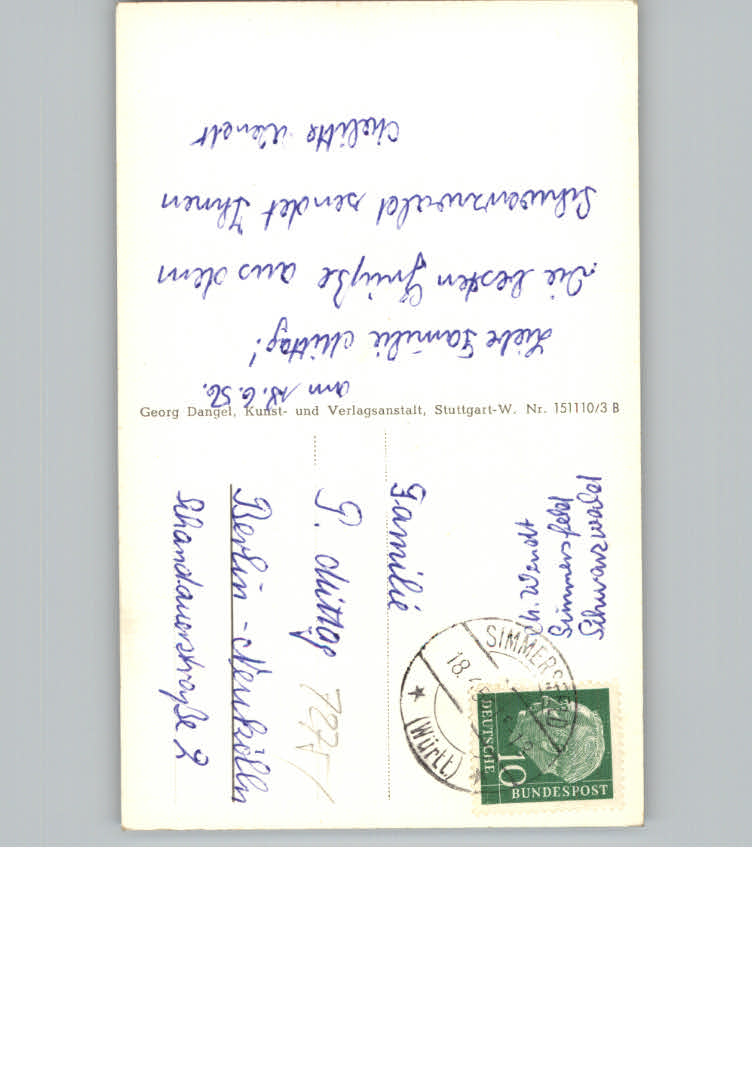 am 18.6.56.
Liebe Familie Mittag!
Die besten Grüße aus dem
Schwarzwald sendet Ihnen
Wendt
Georg Dangel, Kunst- und Verlagsanstalt, Stuttgart-W. Nr. 151110/3 B
Ch. Wendt
Simmersfeld
Schwarzwald
Familie
P. Mittag
Berlin-Neukölln
Schandauerstraße 2
7275/
SIMMERSFELD
(Württ)
18.
DEUTSCHE
10
BUNDESPOST